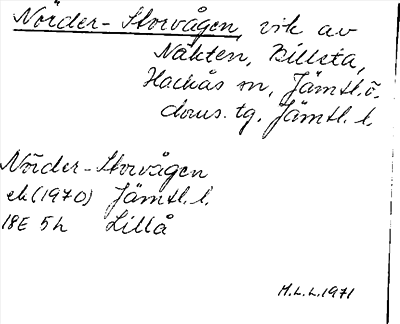 Nörder-Storvågen, vik av
Näkten, Billsta,
Hackås sn, Jämtl. ö.
doms. tg. Jämtl. l.
Nörder-Storvågen
ek (1970) Jämtl. l.
18E 5h Lillå
M.L.L. 1971